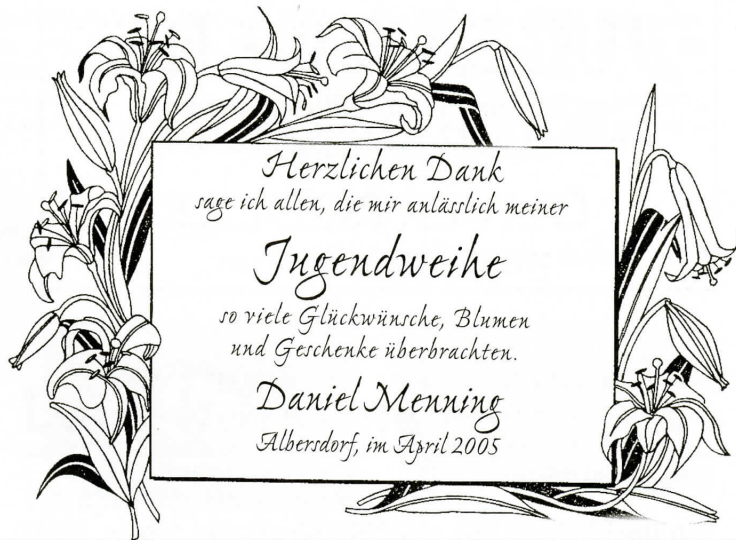 Herzlichen Dank
sage ich allen, die mir anlässlich meiner
Jugendweihe
so viele Glückwünsche, Blumen
und Geschenke überbrachten.
Daniel Menning
Albersdorf, im April 2005